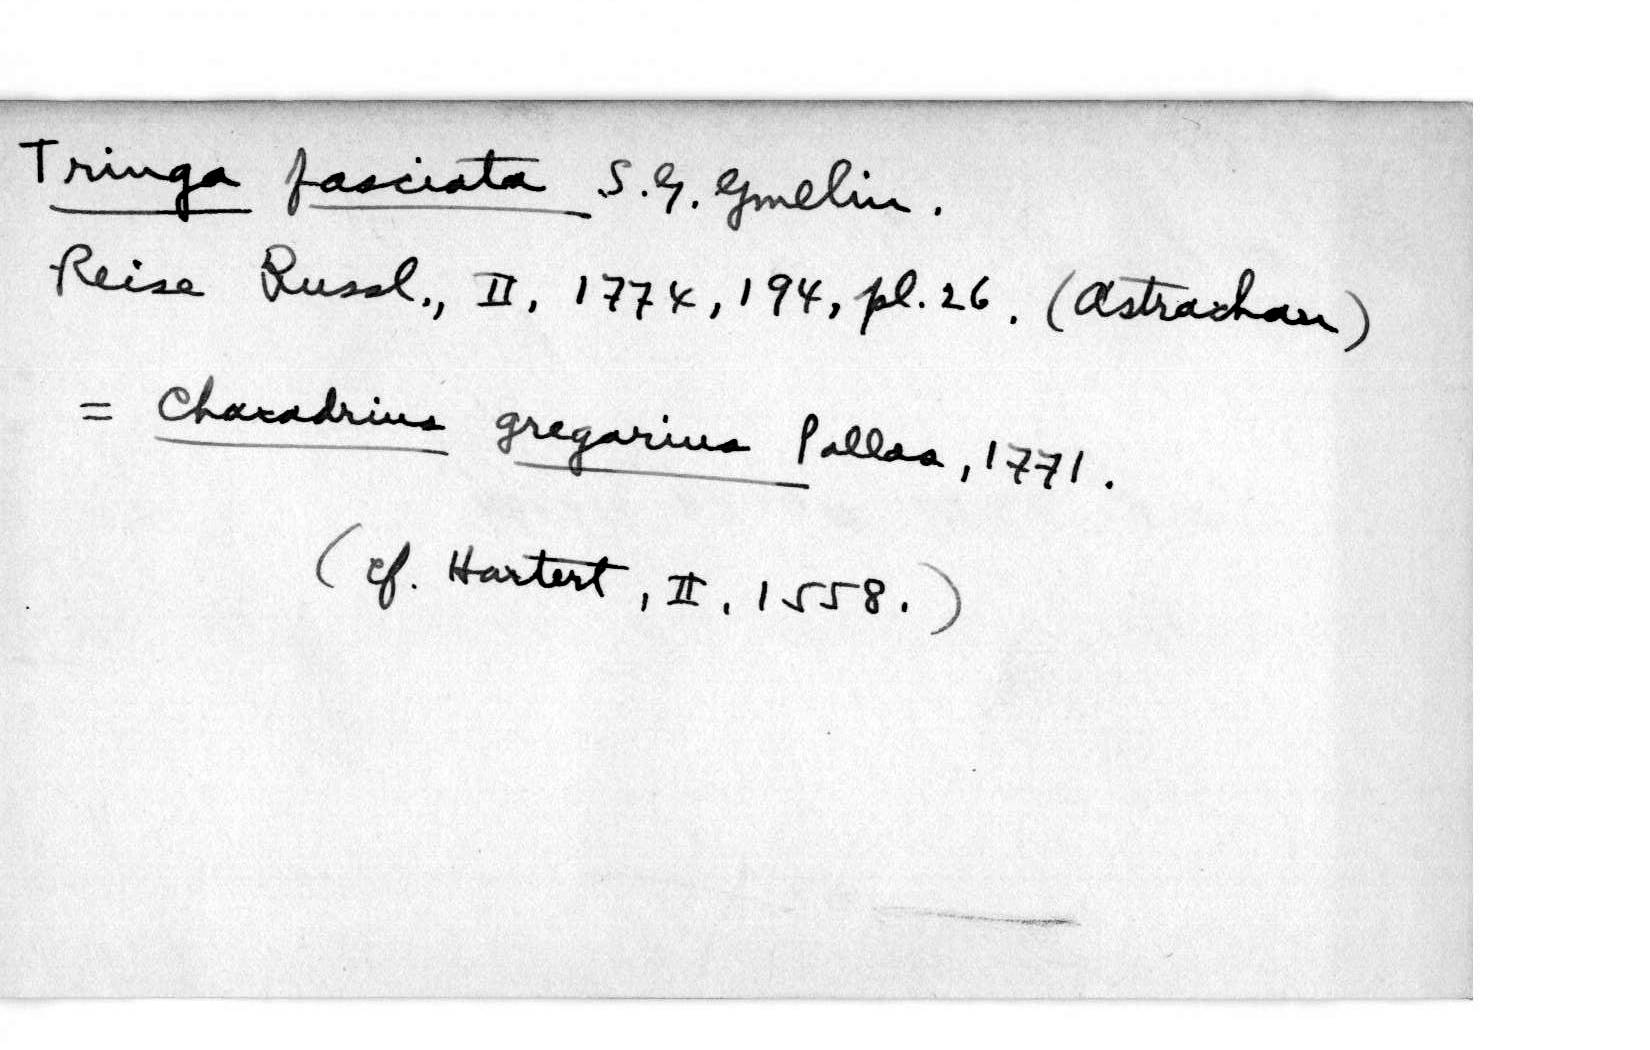 Tringa fasciata S.G. Gmelin.
Reise Russl., II, 1774, 194, pl. 26. (Astrachan)
= Charadrius gregarius Pallas, 1771.
(cf. Hartert, II, 1558.)